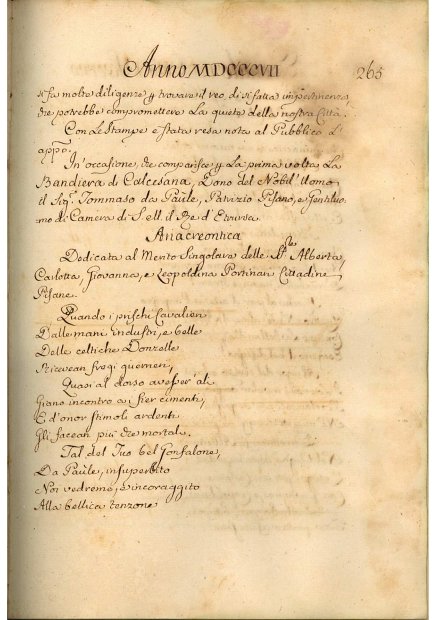 Anno MDCCCVII 263
si fa molte diligenze p trovare il reo, di sì fatta impertinenza,
che potrebbe compromettere La quiete della nostra Città.
Con Le Stampe è stata resa nota al Pubblico L'
appo:
In occasione, che comparisce p La prima volta La
Bandiera di Calcesana, Dono del Nobil' Uomo
il Sig.r Tommaso da Paùle, Patrizio Pisano, e Gentiluo
mo di Camera di S. e il Re d'Etruria.
Anacreontica
Dedicata al Merito Singolare delle S.re Alberta,
Carlotta, Giovanna, e Leopoldina Portinari Cittadine
Pisane.
Quando i prischi Cavalieri
Dalle mani industri, e belle
Delle celtiche Donzelle
Ricevean fregi guerrieri,
Quasi al dorso avesser' ali
Giano incontro a i fier cimenti,
E d'onor stimoli ardenti
Gli facean più che mortali.
Tal del Tuo bel Gonfalone,
Da Paùle, insuperbito
Noi vedremo, e incoraggito
Alla bellica tenzone